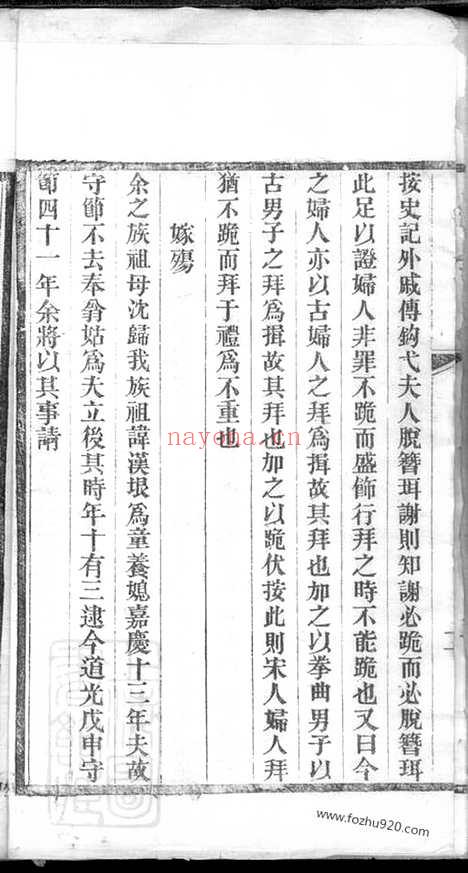 按史記外戚傳鉤弋夫人脫簪珥謝則知謝必跪而必脫簪珥
此足以證婦人非罪不跪而盛飾行拜之時不能跪也又曰今
之婦人亦以古婦人之拜爲揖故其拜也加之以拳曲男子以
古男子之拜爲揖故其拜也加之以跪伏按此則宋人婦人拜
猶不跪而拜于禮爲不重也
嫁殤
余之族祖母沈歸我族祖諱漢垠爲童養媳嘉慶十三年夫故
守節不去奉翁姑爲夫立後其時年十有三逮今道光戊申守
節四十一年余將以其事請
nayona.cn
www.fozhu920.com